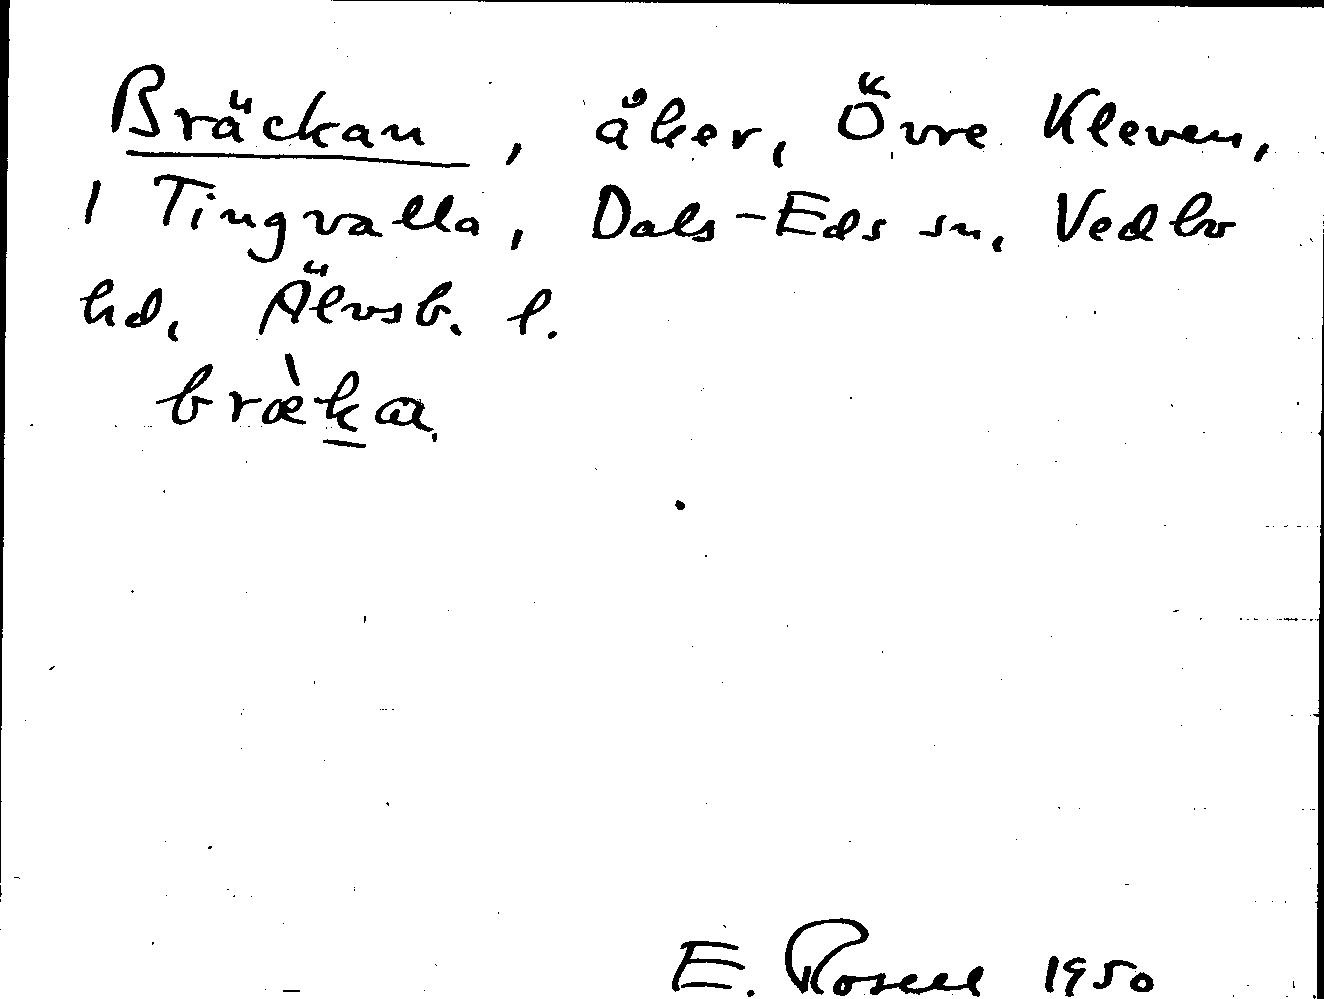 Bräckan, åker, Övre Kleven,
1 Tingvalla, Dals-Eds sn, Vedbo
hd, Älvsb. l.
bræ̀k̲a
E. Rosell 1950